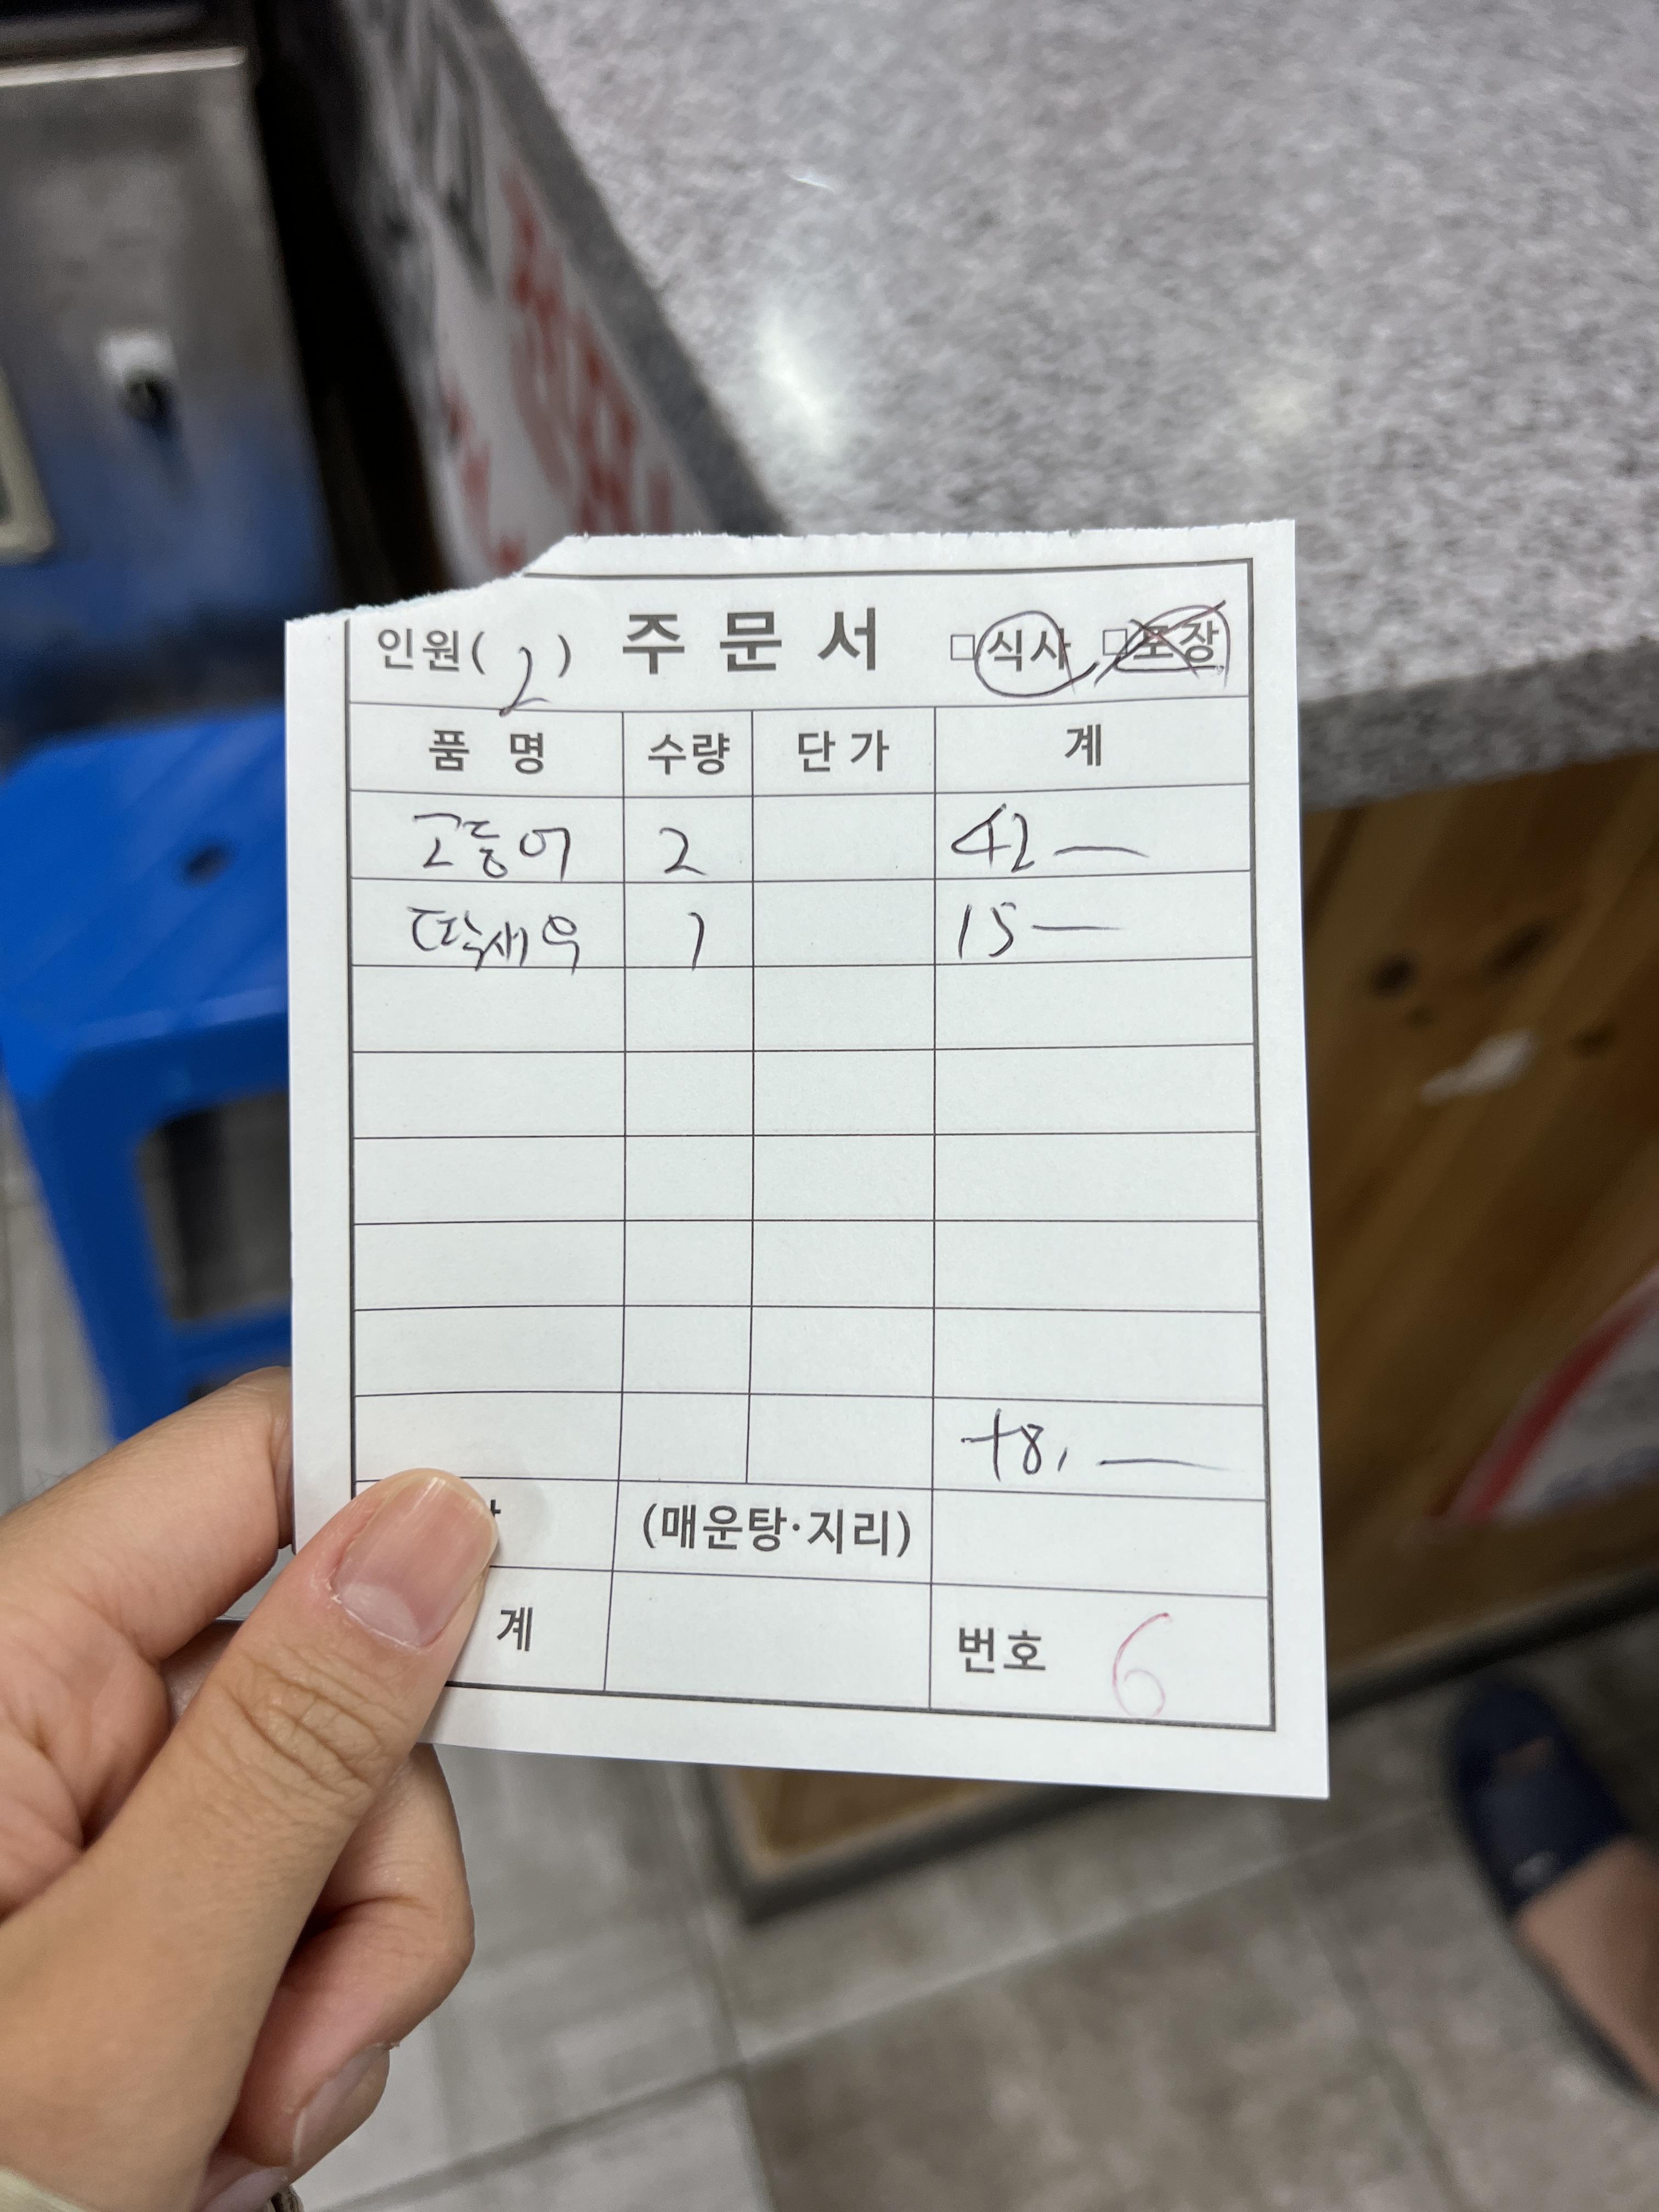 인원( 2 ) 주 문 서 □식사 □포장
품 명 수량 단 가 계
고등어 2 42 —
딱새우 1 15 —
+8, —
(매운탕·지리)
계 번호 6